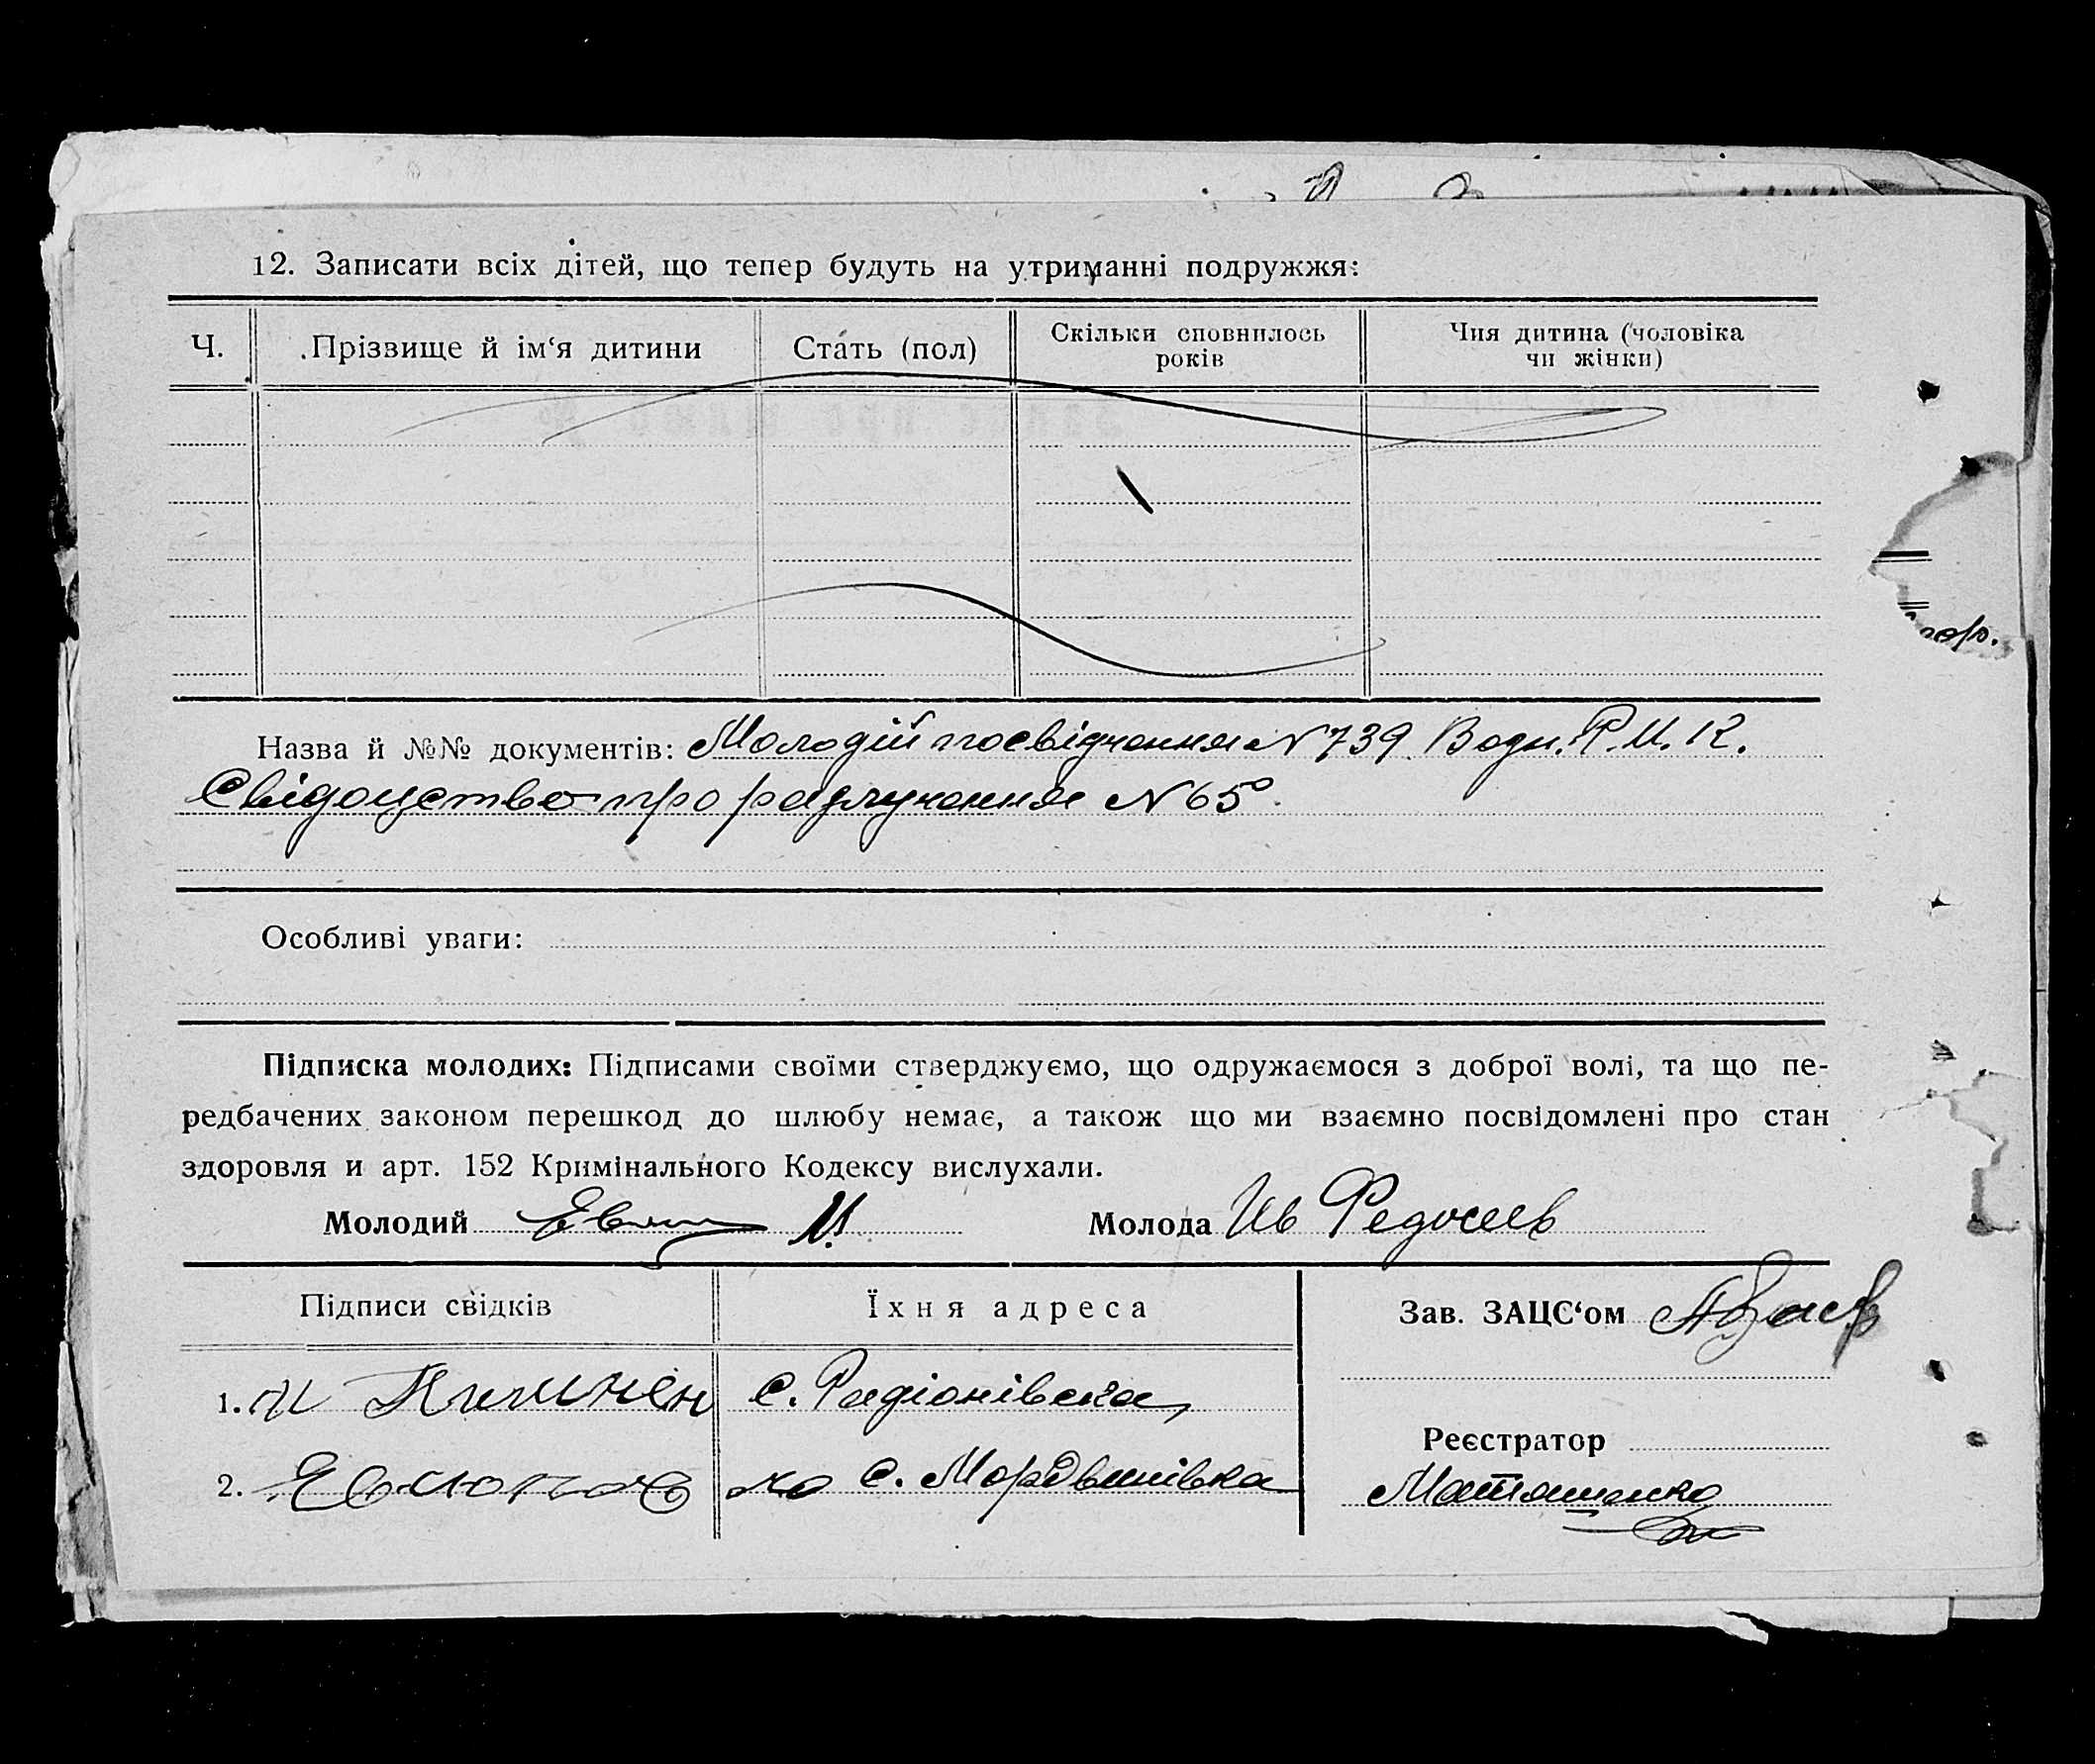 12. Записати всіх дітей, що тепер будуть на утриманні подружжя:
Ч. Прізвище й ім‘я дитини Стать (пол) Скільки сповнилось років Чия дитина (чоловіка чи жінки)
Назва й №№ документів: Молодій посвідчення N 739 Водн. Р.И.К.
Свідоцство про разлучення N 65
Особливі уваги:
Підписка молодих: Підписами своїми стверджуємо, що одружаємося з доброї волі, та що пе-
редбачених законом перешкод до шлюбу немає, а також що ми взаємно посвідомлені про стан
здоровля и арт. 152 Кримінального Кодексу вислухали.
Молодий Молода Ив Федосеев
Підписи свідків Їхня адреса Зав. ЗАЦС‘ом
1. с. Радіонівска,
Реєстратор
2. с. Мордвинівка